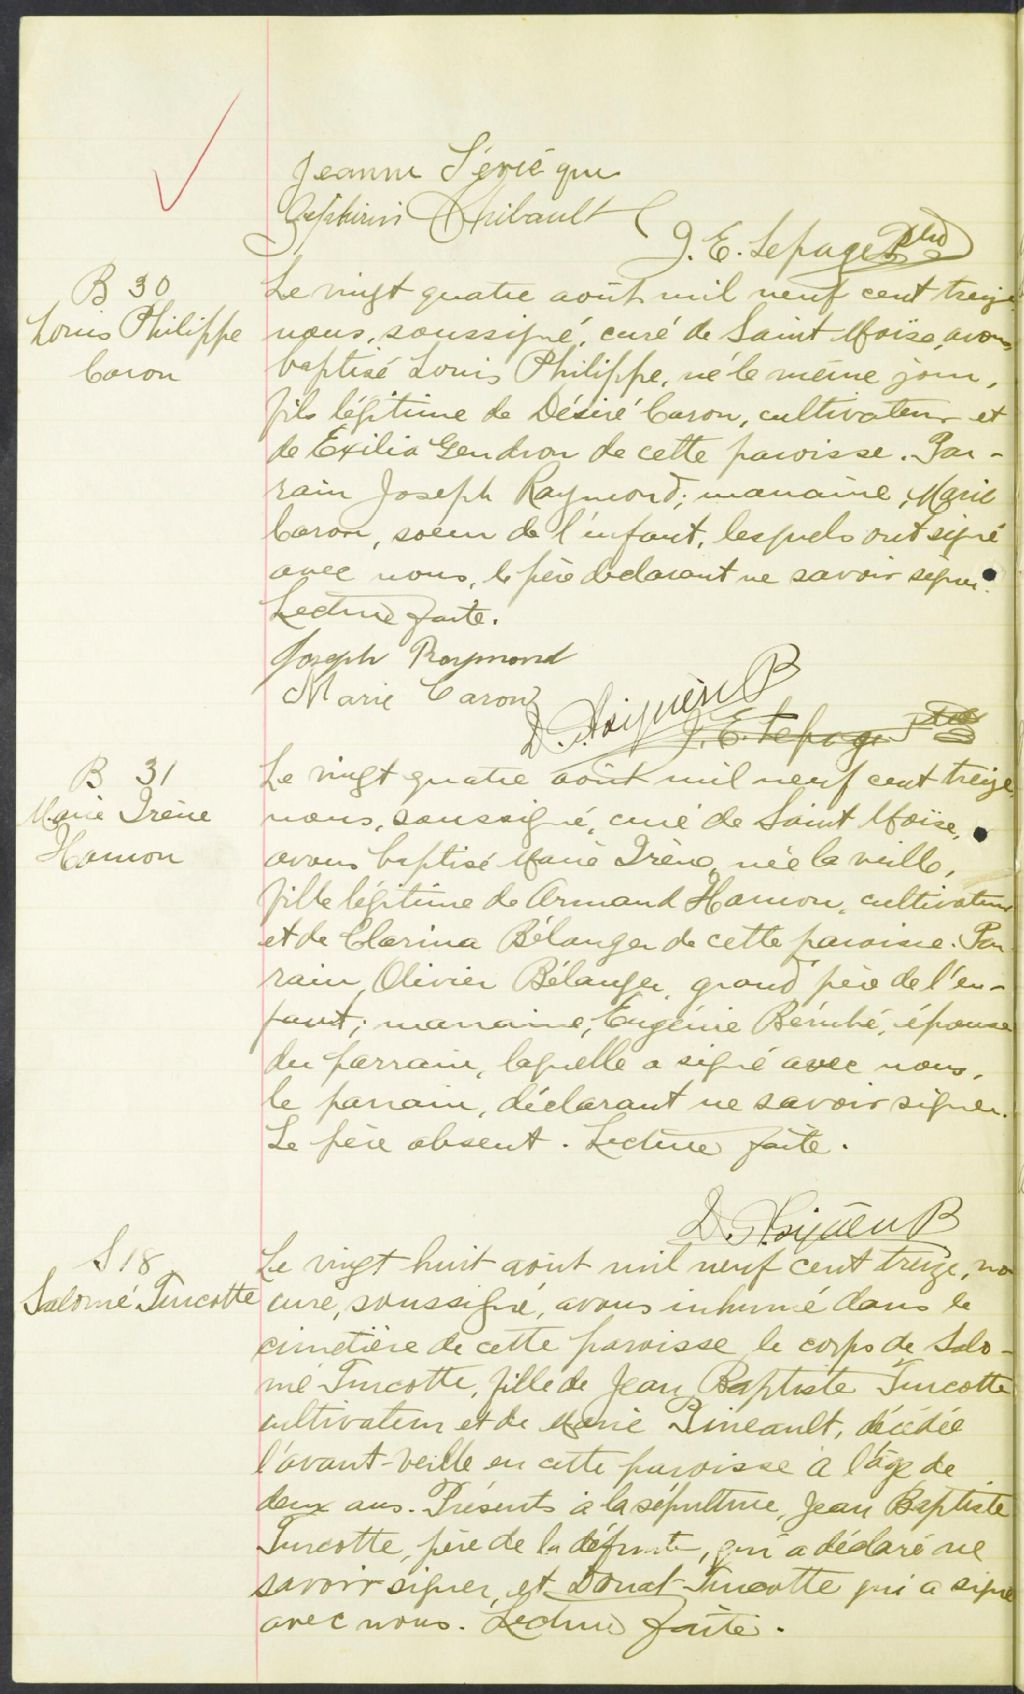 Jeanne Lévêque
Zéphirin Thibault
J. E. Lepage Ptre
B 30
Louis Philippe
Caron
Le vingt quatre août mil neuf cent treize
nous, soussigné, curé de Saint Moïse, avons
baptisé Louis Philippe, né le même jour,
fils légitime de Désiré Caron, cultivateur et
de Exilia Gendron de cette paroisse. Par-
rain Joseph Raymond; marraine, Marie
Caron, soeur de l'enfant, lesquels ont signé
avec nous, le père déclarant ne savoir signer.
Lecture faite.
Joseph Raymond
Marie Caron
J. E. Lepage Ptre
B 31
Marie Irène
Hamon
Le vingt quatre août mil neuf cent treize,
nous, soussigné, curé de Saint Moïse,
avons baptisé Marie Irène, née la veille,
fille légitime de Armand Hamon, cultivateur
et de Clarina Bélanger de cette paroisse. Par
rain, Olivier Bélanger, grand père de l'en-
fant; marraine, Eugénie Bérubé, épouse
du parrain, laquelle a signé avec nous,
le parrain, déclarant ne savoir signer.
Le père absent. Lecture faite.
S 18
Salomé Turcotte
Le vingt huit août mil neuf cent treize, no
curé, soussigné, avons inhumé dans le
cimetière de cette paroisse le corps de Salo-
mé Turcotte, fille de Jean Baptiste Turcotte
cultivateur et de Marie Pineault, décédée
l'avant-veille en cette paroisse à l'âge de
deux ans. Présents à la sépulture, Jean Baptiste
Turcotte, père de la défunte, qui a déclaré ne
savoir signer, et Donat Turcotte qui a signé
avec nous. Lecture faite.